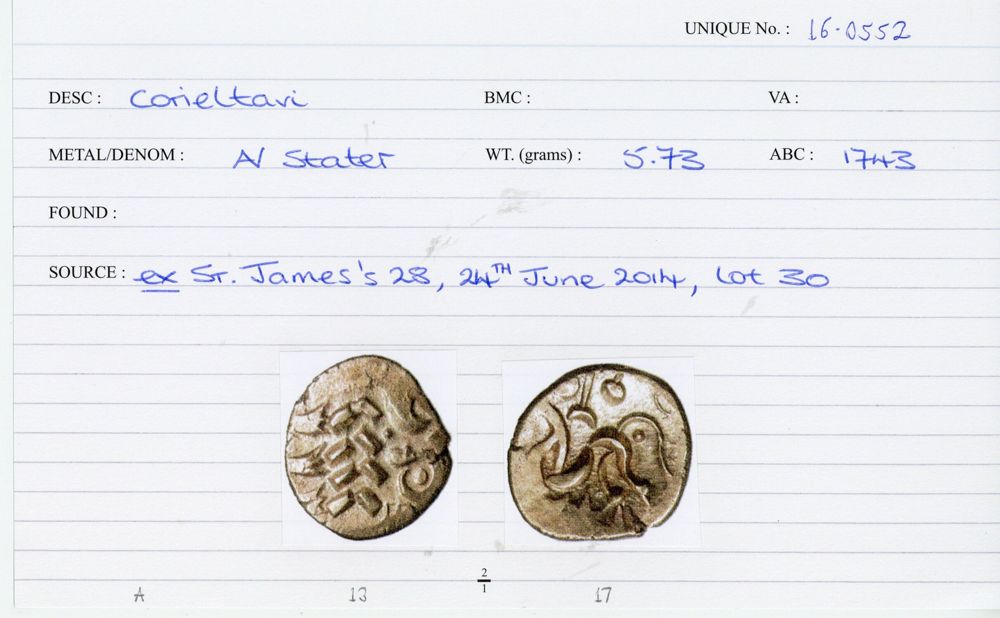 UNIQUE No. : 16-0552
DESC : Corieltavi BMC : VA :
METAL/DENOM : AV Stater WT. (grams) : 5.73 ABC : 1743
FOUND :
SOURCE : ex St. James's 28, 24TH June 2014, Lot 30
2
1
A 13 17